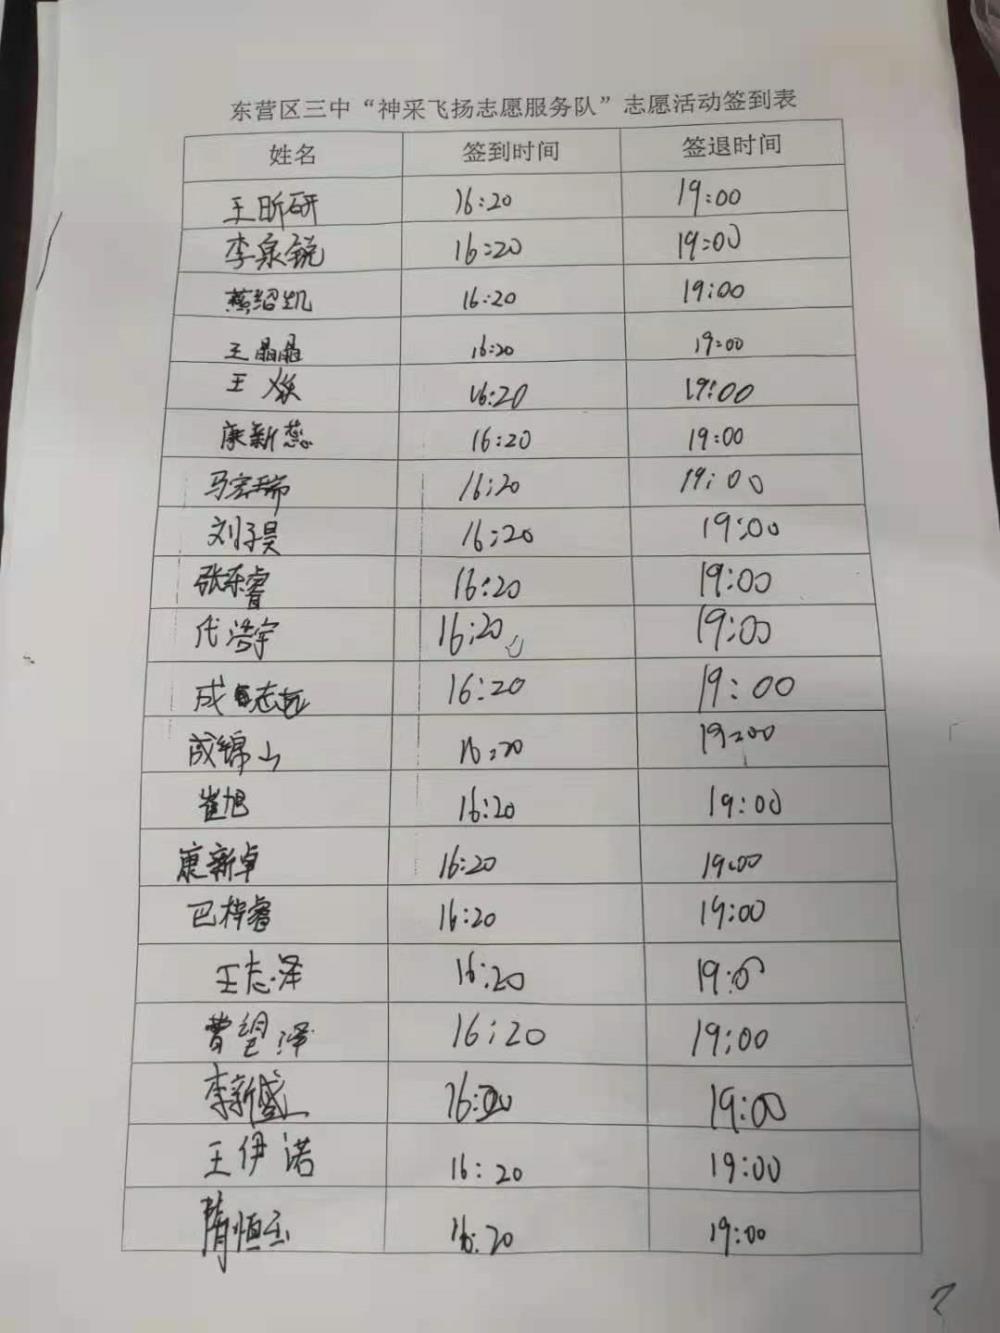 东营区三中“神采飞扬志愿服务队”志愿活动签到表
姓名 签到时间 签退时间
王昕研 16:20 19:00
李泉锐 16:20 19:00
燕绍凯 16:20 19:00
王晶晶 16:20 19:00
王焱 16:20 19:00
康新蕊 16:20 19:00
马宏瑞 16:20 19:00
刘子昊 16:20 19:00
张东睿 16:20 19:00
代浩宇 16:20 19:00
成志远 16:20 19:00
成锦山 16:20 19:00
崔旭 16:20 19:00
康新卓 16:20 19:00
巴梓睿 16:20 19:00
王志泽 16:20 19:00
曹望泽 16:20 19:00
李新盛 16:20 19:00
王伊诺 16:20 19:00
隋恒玉 16:20 19:00